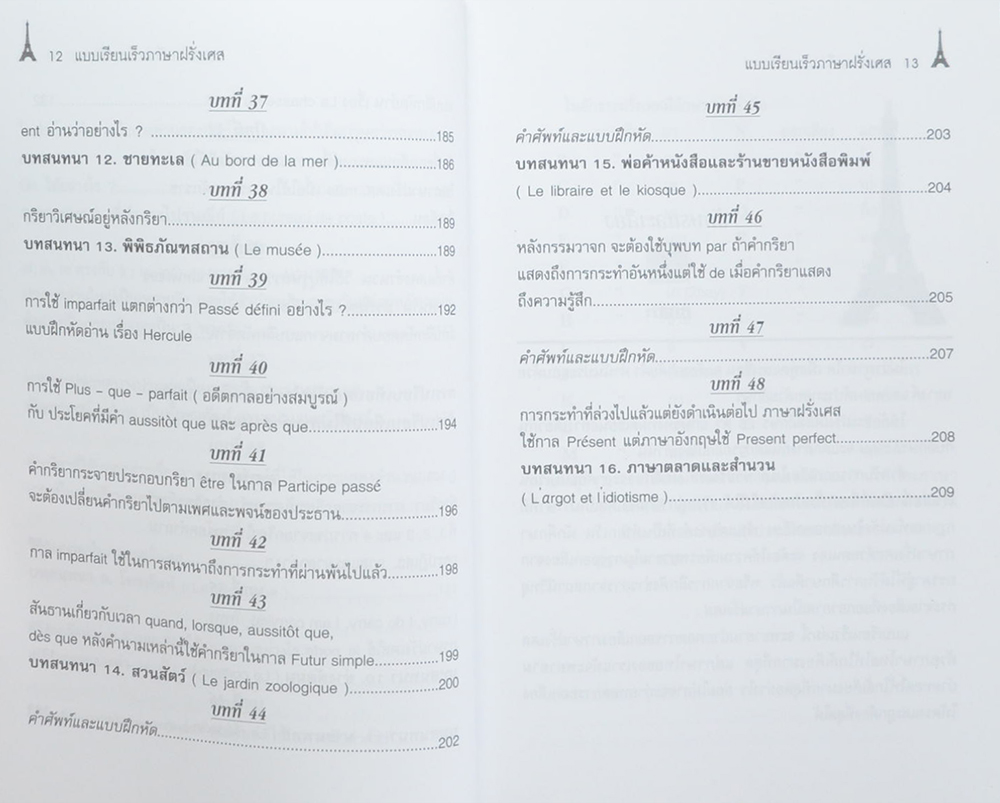 12 แบบเรียนเร็วภาษาฝรั่งเศส
บทที่ 37
ent อ่านว่าอย่างไร ? ...185
บทสนทนา 12. ชายทะเล ( Au bord de la mer )...186
บทที่ 38
กริยาวิเศษณ์อยู่หลังกริยา...189
บทสนทนา 13. พิพิธภัณฑสถาน ( Le musée )...189
บทที่ 39
การใช้ imparfait แตกต่างกว่า Passé défini อย่างไร ?...192
แบบฝึกหัดอ่าน เรื่อง Hercule
บทที่ 40
การใช้ Plus - que - parfait ( อดีตกาลอย่างสมบูรณ์ )
กับ ประโยคที่มีคำ aussitòt que และ après que...194
บทที่ 41
คำกริยากระจายประกอบกริยา être ในกาล Participe passé
จะต้องเปลี่ยนคำกริยาไปตามเพศและพจน์ของประธาน...196
บทที่ 42
กาล imparfait ใช้ในการสนทนาถึงการกระทำที่ผ่านพ้นไปแล้ว...198
บทที่ 43
สันธานเกี่ยวกับเวลา quand, lorsque, aussitôt que,
dès que หลังคำนามเหล่านี้ใช้คำกริยาในกาล Futur simple...199
บทสนทนา 14. สวนสัตว์ ( Le jardin zoologique )...200
บทที่ 44
คำศัพท์และแบบฝึกหัด...202
แบบเรียนเร็วภาษาฝรั่งเศส 13
บทที่ 45
คำศัพท์และแบบฝึกหัด...203
บทสนทนา 15. พ่อค้าหนังสือและร้านขายหนังสือพิมพ์
( Le libraire et le kiosque )...204
บทที่ 46
หลังกรรมวาจก จะต้องใช้บุพบท par ถ้าคำกริยา
แสดงถึงการกระทำอันหนึ่งแต่ใช้ de เมื่อคำกริยาแสดง
ถึงความรู้สึก...205
บทที่ 47
คำศัพท์และแบบฝึกหัด...207
บทที่ 48
การกระทำที่ล่วงไปแล้วแต่ยังดำเนินต่อไป ภาษาฝรั่งเศส
ใช้กาล Présent แต่ภาษาอังกฤษใช้ Present perfect...208
บทสนทนา 16. ภาษาตลาดและสำนวน
( L'argot et l'idiotisme )...209